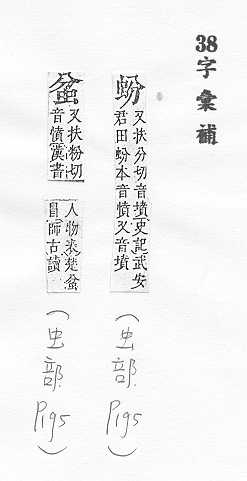 38字彙補
蚡
又扶分切音墳史記武安
君田蚡本音憤又音墳
(虫部 P195)
蚠
又扶粉切
音憤漢書
人物表楚蚠
冒師古讀
(虫部 P195)